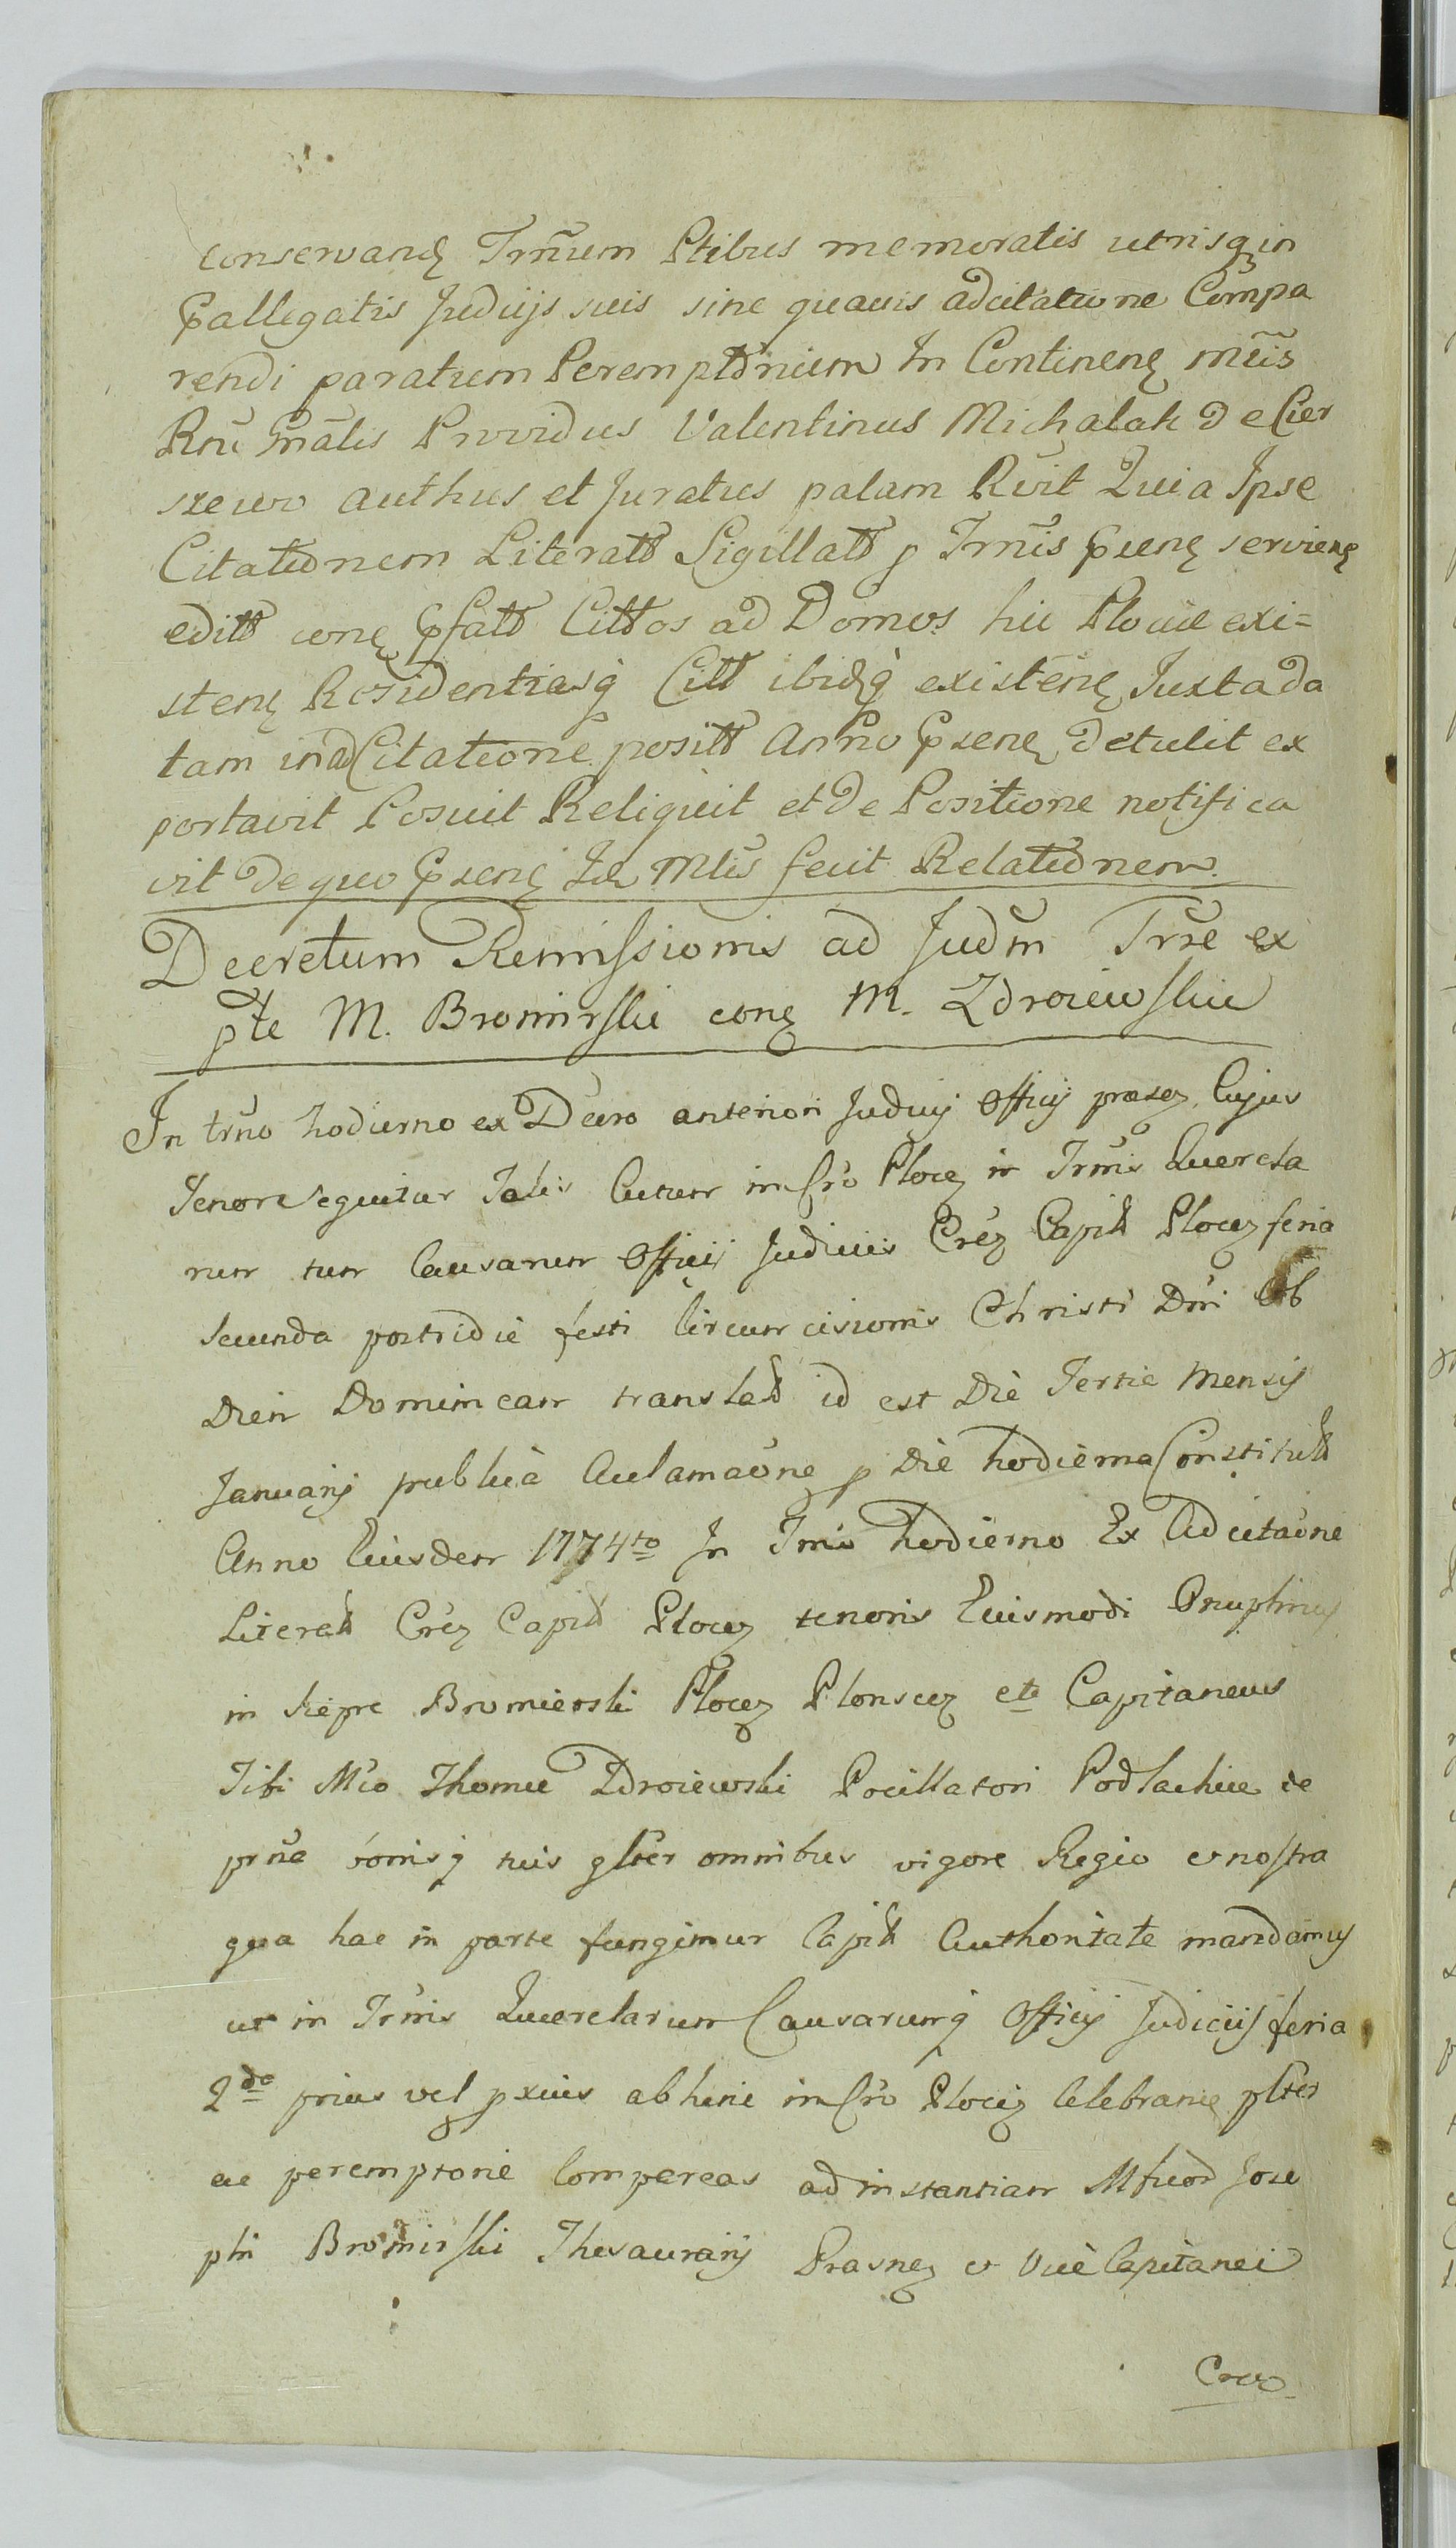 conservanę Trm̃um Ptibus memoratis utrisq in
Pallegatis Judijs suis sine quavis adcitatione Compa
rendi paratum Peremptõrium In Continenę mũis
Rnũ Gnãlis Providus Valentinus Michalak de Cier
szewo authus et Juratus palam Rvit Quia Ipse
Citatõnem Literatt Sigillatt p Trmĩs Pxenę servienę
editt conę Pfatt Cittos ad Domos hic Plociæ exi=
stenę Residentiasq Citt ibidq existenę Juxta da
tam in ad Citatione positt Anno Pxenę detulit ex
portavit Posuit Reliquit et de Positione notifica
vit de quo Pxenę Id Mtis fecit Relatõnem.
Decretum Remissionis ad Judm̃ Trræ ex
pte M. Bromirski conę M. Zdroiewskie
In trno hodierno ex Decro anteriori Judicij Officij præsez Cujus
Tenor Sequitur Talis Actum in Cro Plocę in Trmis Querela
rum tum Causarum Officij Judicijs Crez Capitt Plocez feria
secunda postridie festi Circumcisionis Christi Dni Ob
Diem Dominicam translatt id est Die Tertia Mensis
Januarij publica Aclamaõne p Die hodierna Constitutt
Anno Eiusdem 1774to In Trmo hodierno Ex Adcitaõne
Literatt Crez Capitt Plocez tenoris Eiusmodi Onuphrius
in Siepre Bromierski Plocez Plonscez etc Capitaneus
Tibi Mco Thomæ Zdroiewski Pocillatori Podlachiæ de
prña bonisq tuis gster omnibus vigore Regio et nostra
qua hac in parte fungimur Capitt Authoritate mandamus
ut in Trmis Querelarum Causarumq Officij Judicijs feria
2da prius vel pxius abhinc in Cro Plocez Celebranę pster
ac peremptorie Compareas ad instantiam Mficor Jose
phi Bromirski Thesaurarij Prasnez et Vice Capitanei
Crez